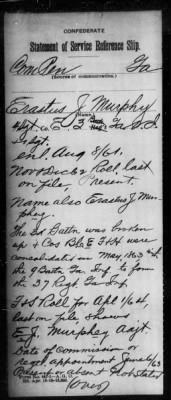 CONFEDERATE
Statement of Service Reference Slip.
Com Pen Ga
(Source of communication.)
Erastus J. Murphy
(Name.)
Sgt. Co. E, 3 Ga. S. S.
Sgt.
enl. Aug 8/61.
Nov & Dec 62 Roll last
on file, Present.
Name also Erastus J. Mur-
phey.
The 3d Battn was broken
up & Cos B & E & H were
consolidated in May, 1863 with
the 9 Battn Ga Inf to form
the 37 Regt. Ga Inf
F & S Roll for Apl 1/64,
last on file shows
E. J. Murphey Adjt
Date of Commission or
recd appointment June 6/63
Present or absent Not stated
(over)